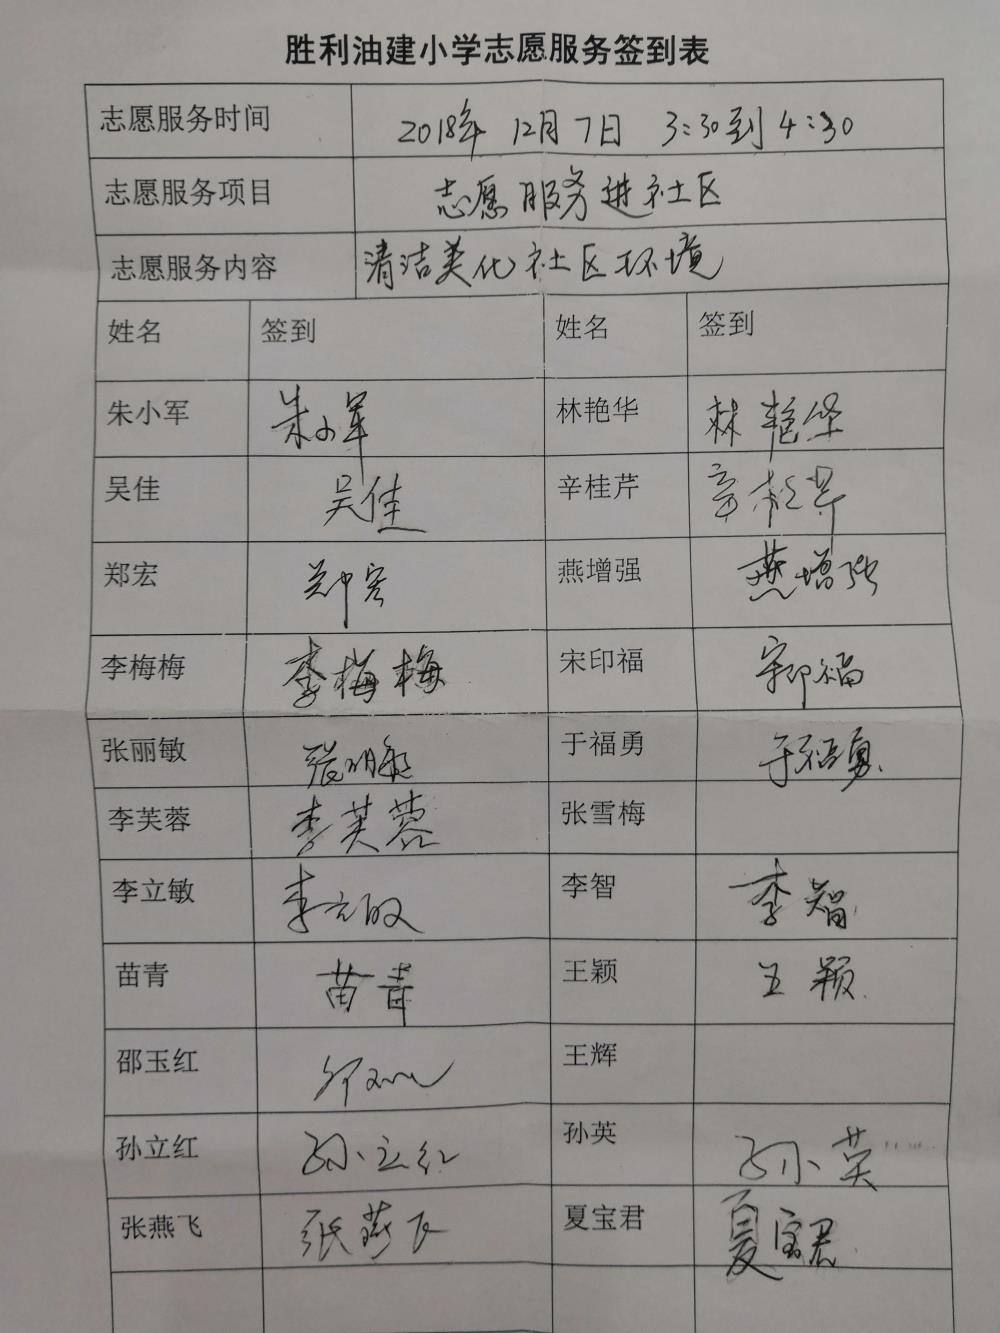 胜利油建小学志愿服务签到表
志愿服务时间 2018年 12月7日 3:30到4:30
志愿服务项目 志愿服务进社区
志愿服务内容 清洁美化社区环境
姓名 签到 姓名 签到
朱小军 朱小军 林艳华 林艳华
吴佳 吴佳 辛桂芹 辛桂芹
郑宏 郑宏 燕增强 燕增强
李梅梅 李梅梅 宋印福 宋印福
张丽敏 张丽敏 于福勇 于福勇
李芙蓉 李芙蓉 张雪梅
李立敏 李立敏 李智 李智
苗青 苗青 王颖 王颖
邵玉红 邵玉红 王辉
孙立红 孙立红 孙英 孙英
张燕飞 张燕飞 夏宝君 夏宝君